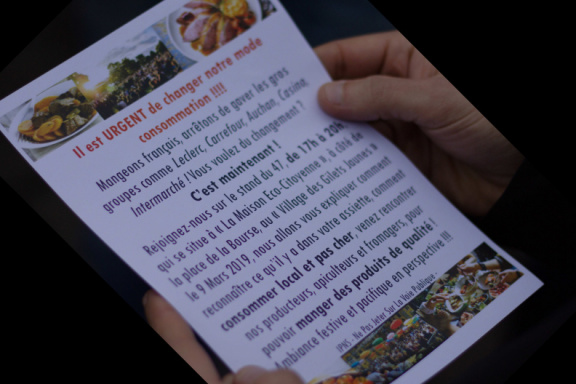 Il est URGENT de changer notre mode
consommation !!!!
Mangeons français, arrêtons de gaver les gros
groupes comme Leclerc, Carrefour, Auchan, Casino
Intermarché ! Vous voulez du changement ?
C'est maintenant !
Rejoignez-nous sur le stand du 47, de 17h à 20h
qui se situe à « La Maison Eco-Citoyenne », à côté de
la place de la Bourse, au « Village des Gilets Jaunes »
le 9 Mars 2019, nous allons vous expliquer comment
reconnaître ce qu'il y a dans votre assiette, comment
consommer local et pas cher, venez rencontrer
nos producteurs, apiculteurs et fromagers, pour
pouvoir manger des produits de qualité !
Ambiance festive et pacifique en perspective !!!
IPNS - Ne Pas Jeter Sur La Voie Publique -